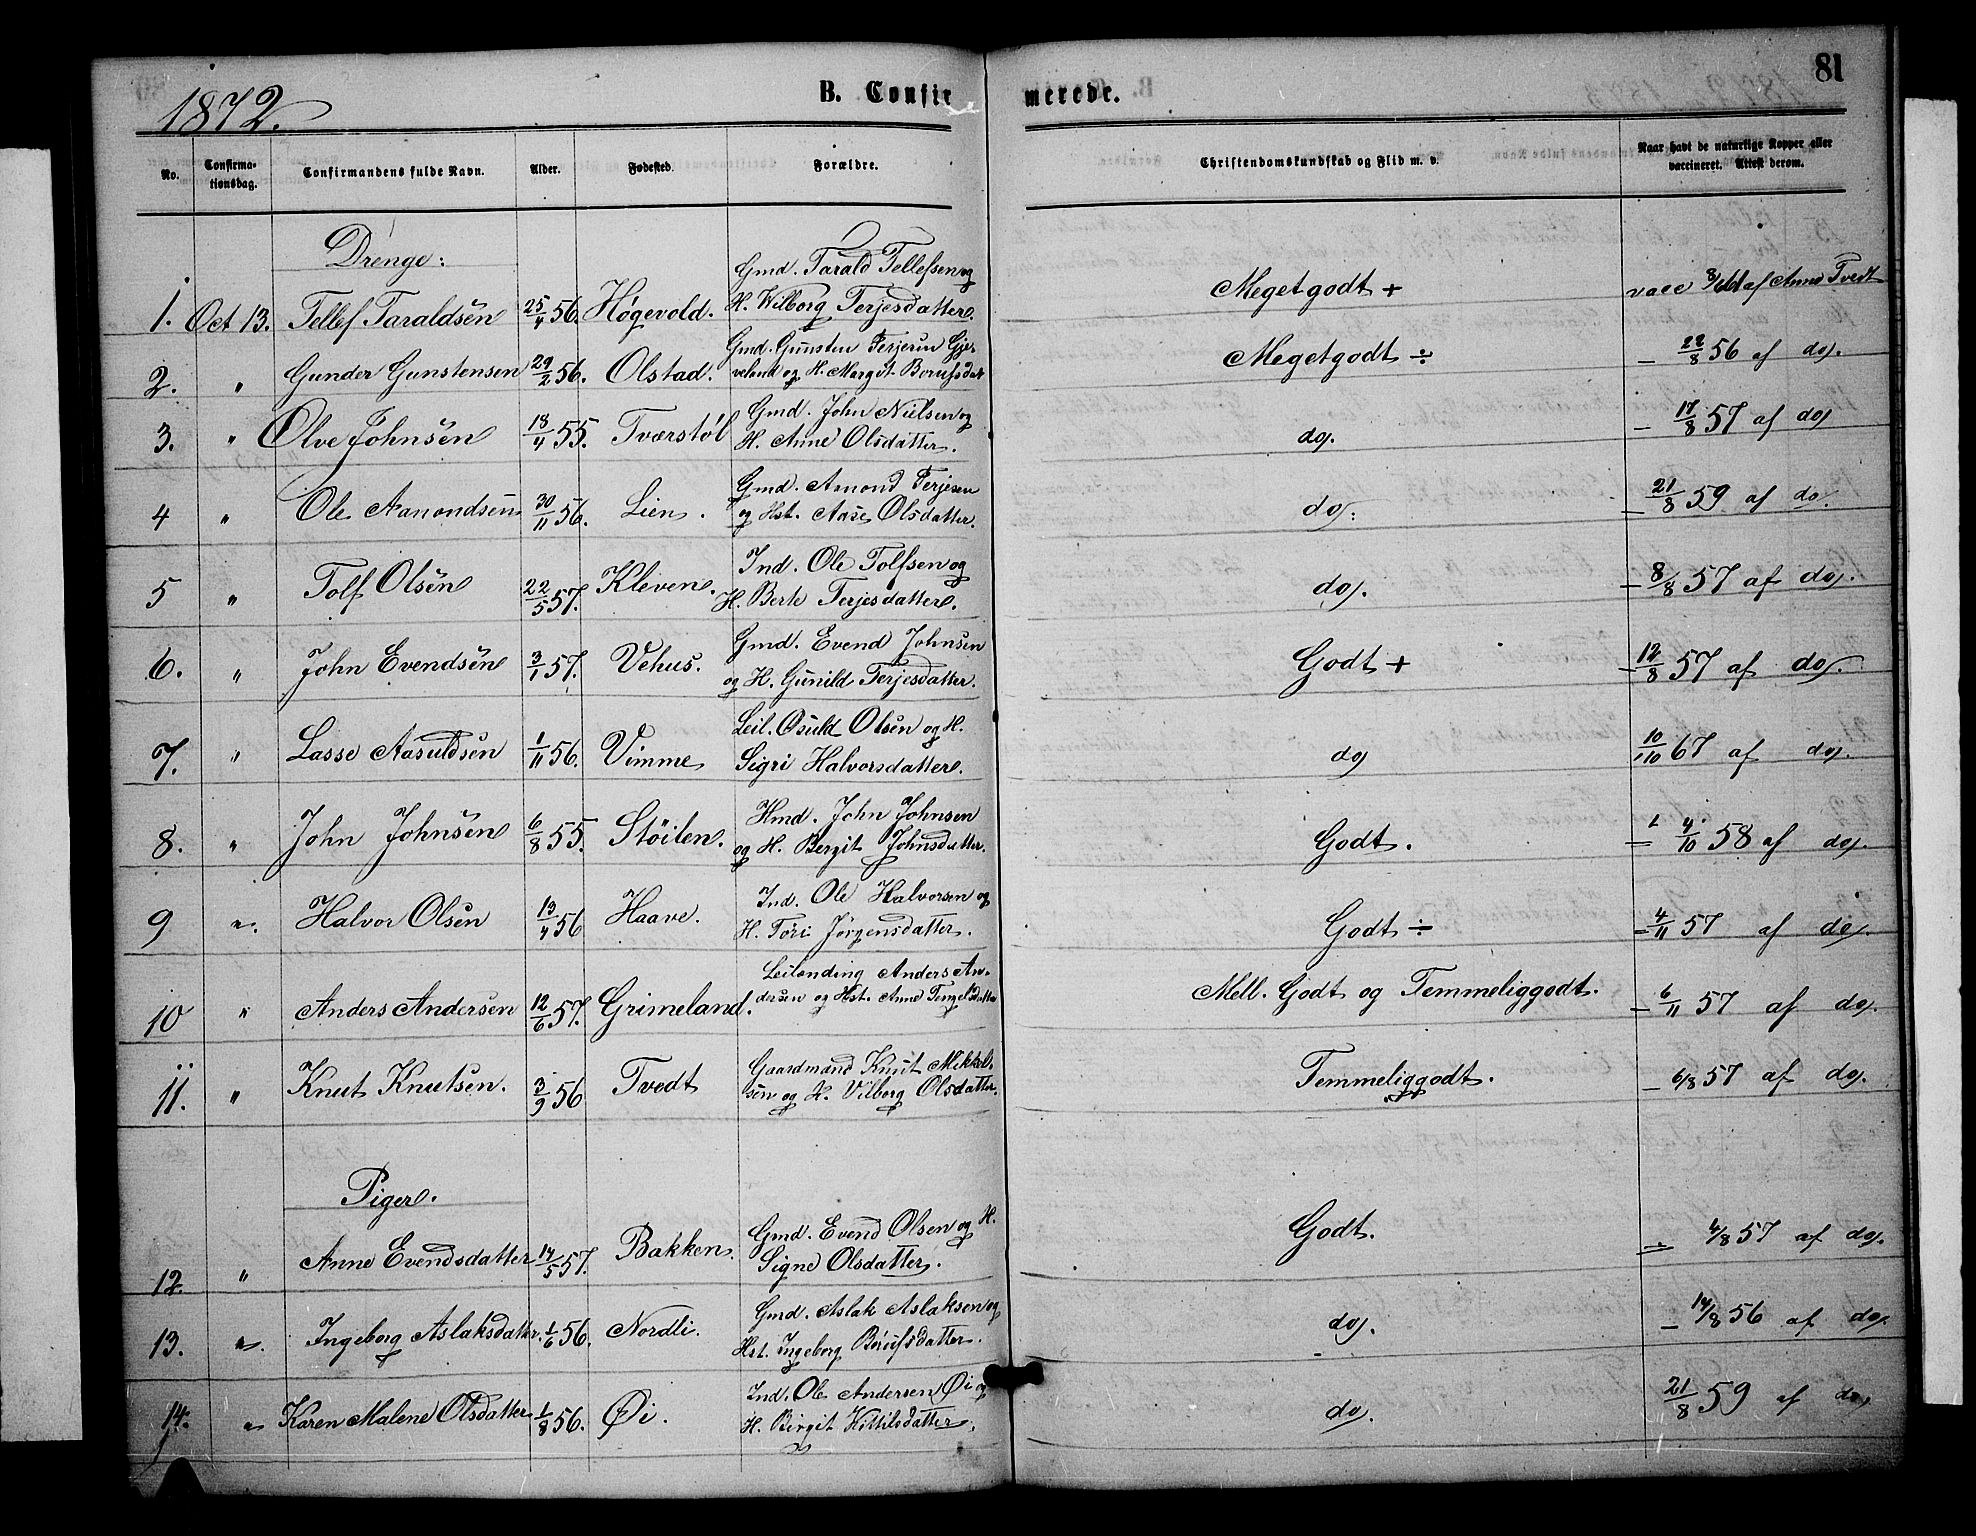 1872.
B. Confirmerede.
81
No.
Confirma-
tionsdag.
Confirmandens fulde Navn.
Alder.
Fødested.
Forældre.
Christendomskundskab og Flid m. v.
Naar havt de naturlige Kopper eller
vaccineret. Attest derom.
Drenge:
Gmd. Tarald Tellefsen og
1. Oct 13. Tellef Taraldsen 25/4 56. Høgevold. H. Wilborg Terjesdatter. Meget godt + vacc af Anne Tvedt
Gmd. Gunsten Terjesen Gjer-
2. " Gunder Gunstensen 29/2 56. Olstad. veland og H. Margit Meget godt ÷ – 22/8 56 af do.
Gmd. John Nielsen og
3. " Olve Johnsen 18/4 55. Tværstøl H. Anne Olsdatter. do. – 17/8 57 af do
Gmd. Amond Terjesen
4 " Ole Aamondsen 30/11 56. Lien. og Hst. Aase Olsdatter. do. – 21/8 59 af do.
Ind. Ole Tolfsen og
5 " Tolf Olsen 22/5 57. Kleven. H. Berte Terjesdatter. do. – 8/8 57 af do.
Gmd. Evend Johnsen
6. " John Evendsen 3/1 57. Vehus. og H. Gunild Terjesdatter. Godt + – 12/8 57 af do.
Leil. Osuld Olsen og H.
7. " Lasse Aasuldsen 1/11 56. Vimme Sigri Halvorsdatter. do 10/10 67 af do.
Hmd. John Johnsen
8. " John Johnsen 6/8 55. Støilen. og H. Bergit Johnsdatter. Godt. – 4/10 58 af do.
Ind. Ole Halvorsen og
9 " Halvor Olsen 13/4 56 Haave. H. Tori Jørgensdatter. Godt ÷ – 4/11 57 af do.
Leilending Anders An-
10 " Anders Andersen 12/6 57. Grimeland. dersen og Hst. Anne Mell. Godt og Temmeliggodt. – 6/11 57 af do.
Gaardmand Knut Mikkel-
11. " Knut Knutsen. 3/9 56 Tvedt sen og H. Vilborg Olsdatter. Temmeliggodt. – 6/8 57 af do.
Piger.
Gmd. Evend Olsen og H.
12. " Anne Evendsdatter 14/5 57. Bakken. Signe Olsdatter. Godt. – 4/8 57 af do.
Gmd. Aslak Aslaksen og
13. " Ingeborg Aslaksdatter. 1/6 56. Nordli. Hst. Ingeborg Børufsdatter. do. – 14/8 56 af do.
Ind. Ole Andersen Øi og
14. " Karen Malene Olsdatter 1/8 56. Øi. H. Birgit Kittilsdatter. do. 21/8 59 af do.